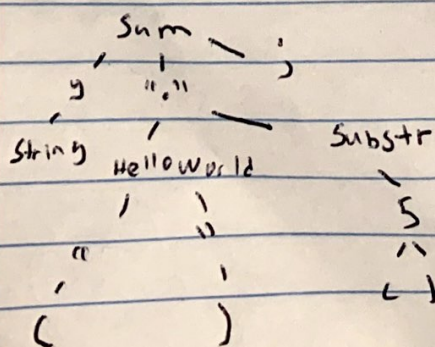 Sum ;
y "."
String HelloWorld Substr
" " 5
( ) ( )